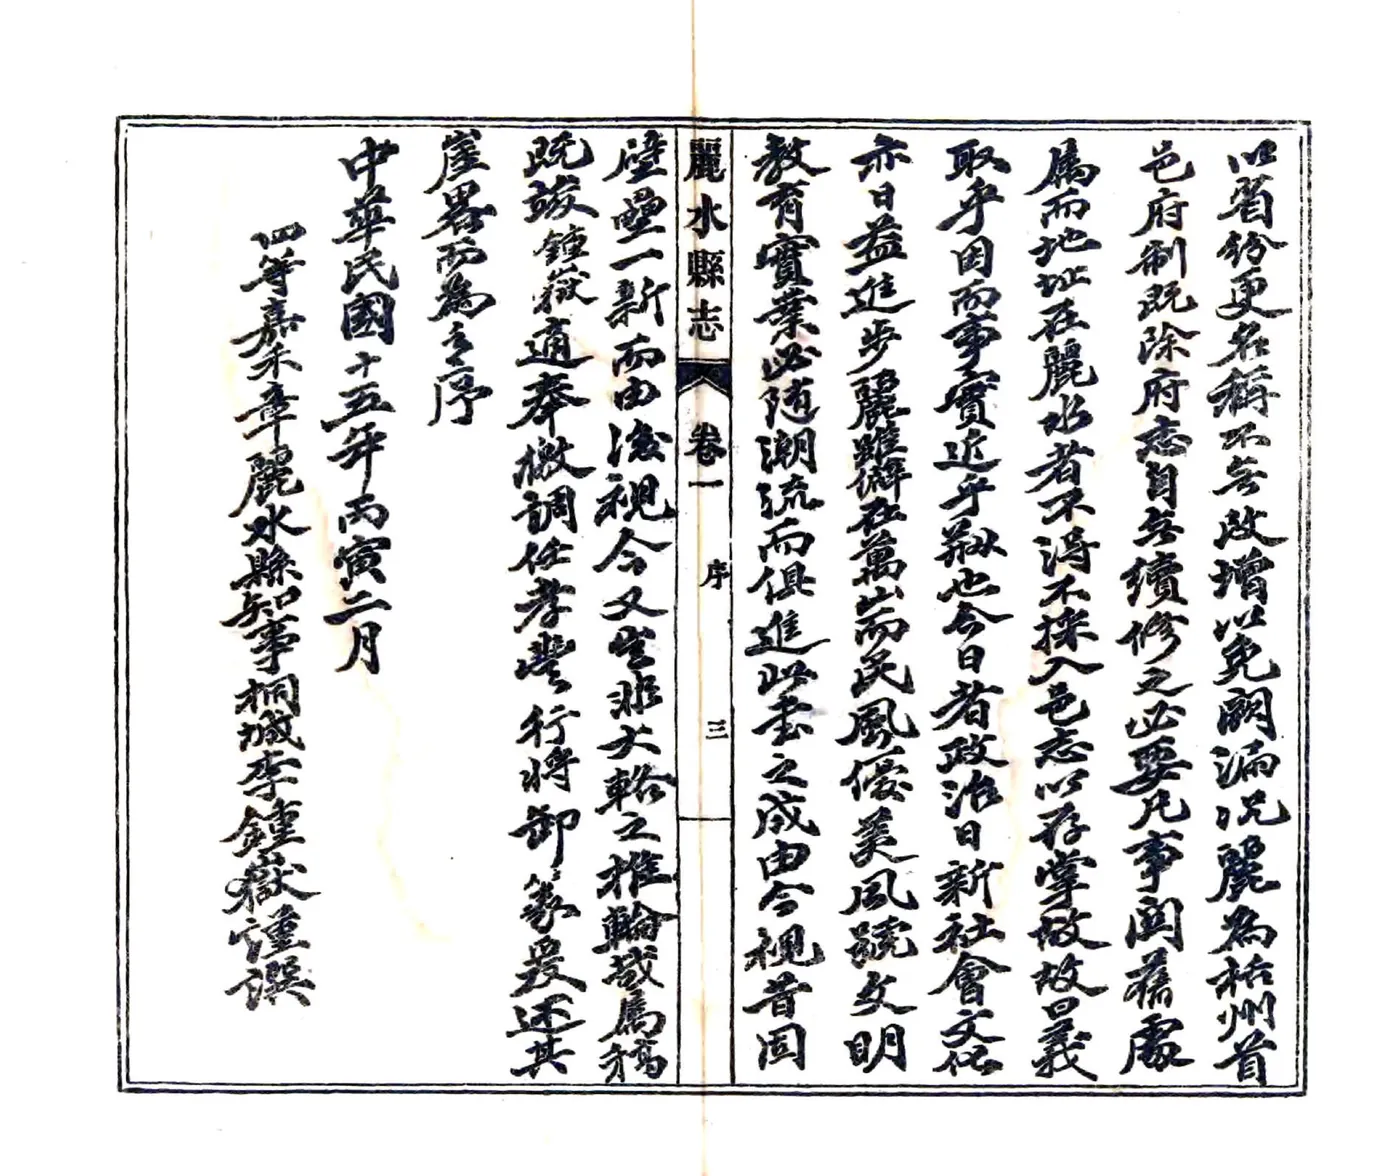 以省紛更名稱不無改增以免闕漏况麗為栝州首
邑府制既除府志自無續修之必要凡事関舊處
屬而地址在麗水者不得不採入邑志以存掌故故曰義
取乎因而事實近乎刱也今日者政治日新社會文化
亦日益進步麗雖僻在萬山而民風優美夙號文明
教育實業必随潮流而俱進此書之成由今視昔固
麗水縣志 卷一 序 三
壁壘一新而由後視今又豈非大輅之推輪哉屬稿
既竣鍾嶽適奉檄調任孝豐行將卸篆爰述其
崖畧而為之序
中華民國十五年丙寅二月
四等嘉禾章麗水縣知事桐城李鍾嶽謹譔